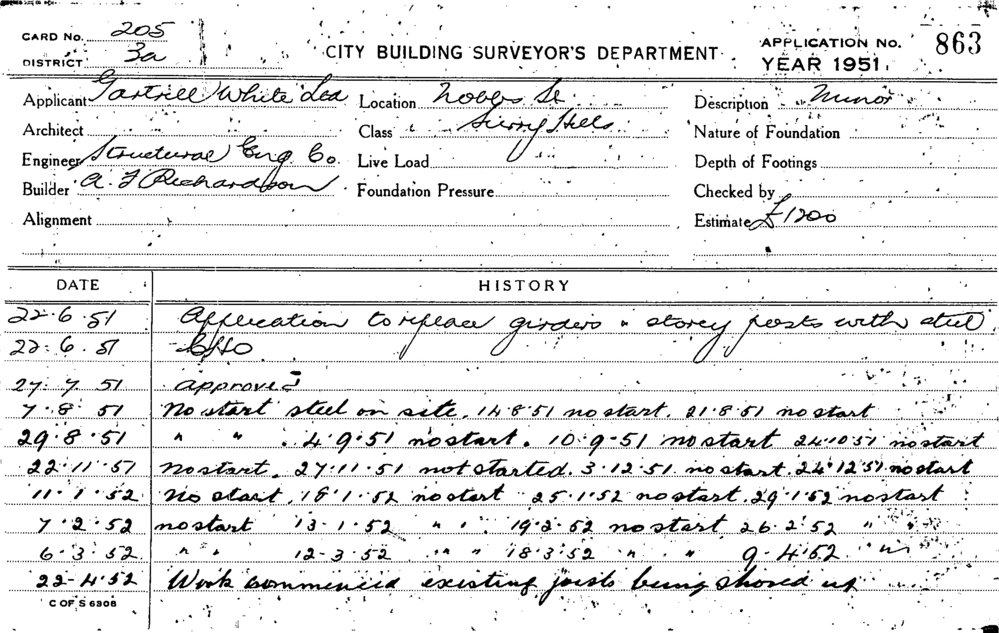 CARD No. 205
DISTRICT 3a
CITY BUILDING SURVEYOR'S DEPARTMENT
APPLICATION No. 863
YEAR 1951
Applicant Gartrell White Ltd Location Nobbs St Description Minor
Architect Class Surry Hills Nature of Foundation
Engineer Structural Eng Co. Live Load Depth of Footings
Builder A. F Richardson Foundation Pressure Checked by
Alignment Estimate £1200
DATE HISTORY
22.6.51 Application to replace girders " storey posts with steel
22.6.51
27.7.51 approved
7.8.51 No start steel on site. 14.8.51 no start. 21.8.51 no start
29.8.51 " " . 4.9.51 no start. 10.9.51 no start 24.10.51 no start
22.11.51 no start. 27.11.51 not started. 3.12.51. no start. 24.12.51 no start
11.1.52 no start. 18.1.52 no start 25.1.52 no start. 29.1.52 no start
7.2.52 no start 13.1.52 " " 19.2.52 no start 26.2.52 " "
6.3.52 " " 12.3.52 " " 18.3.52 " " 9.4.52 " "
22.4.52 Work commenced existing joists being shored up
C OF S 6308